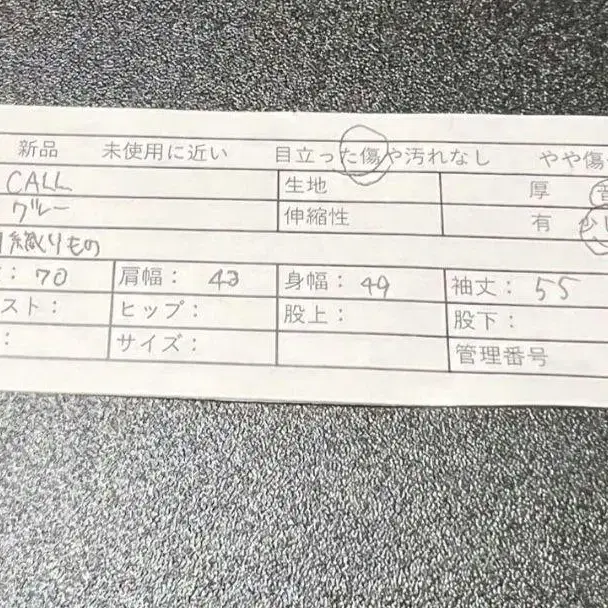 新品 未使用に近い 目立った傷や汚れなし やや傷
CALL 生地 厚
グレー 伸縮性 有 少し
織りもの
: 70 肩幅: 43 身幅: 49 袖丈: 55
スト: ヒップ: 股上: 股下:
: サイズ: 管理番号